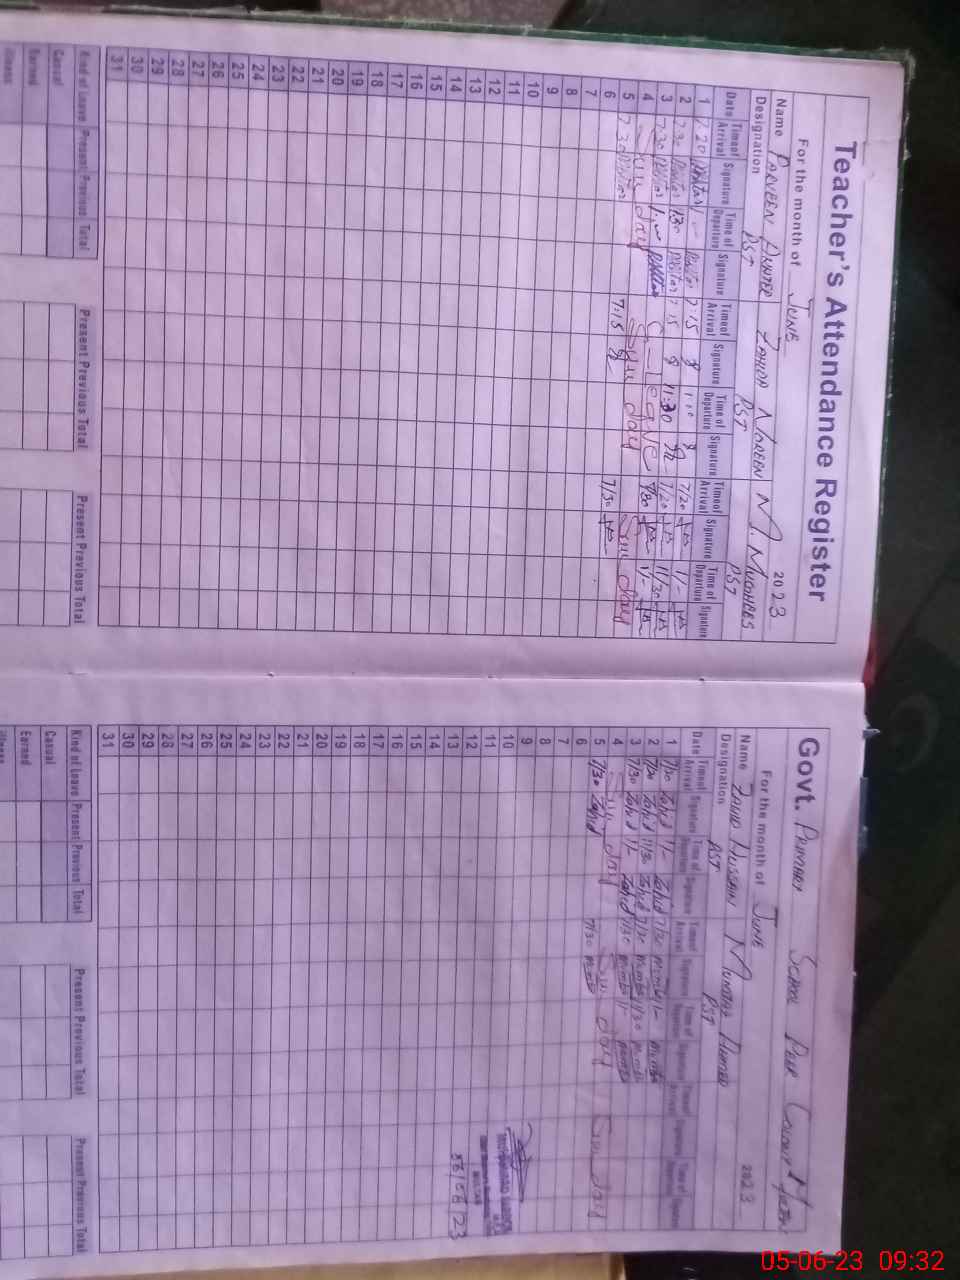 Teacher's Attendance Register
For the month of JUNE 2023
Name PARVEEN AKHTER ZAHIDA NOREEN M. MUGHEES
Designation PST PST PST
Date Time of Arrival Signature Time of Departure Signature Time of Arrival Signature Time of Departure Signature Time of Arrival Signature Time of Departure Signature
1 7.20 7:15 7/20 1/-
2 7.30 1:30 7:15 11:30 7/20 11/30
3 7:30 C-Leave 7/30 1/-
4 Sun day Sun day Sun day
5 7:30 7:15 7/30
6
7
8
9
10
11
12
13
14
15
16
17
18
19
20
21
22
23
24
25
26
27
28
29
30
31
Kind of Leave Present Previous Total Present Previous Total Present Previous Total
Casual
Earned
Illness
Govt. PRIMARY SCHOOL PEER COLONY
For the month of JUNE 2023
Name ZAHID HUSSAIN M MUMTAZ AHMED
Designation PST PST
Date Time of Arrival Signature Time of Departure Signature Time of Arrival Signature Time of Departure Signature Time of Arrival Signature Time of Departure Signature
1 7/20 Zahid 1/- Zahid 7/30 1/-
2 7/20 Zahid 11/30 Zahid 7/30 11/30
3 7/30 Zahid 1/- Zahid 7/30 1/-
4 Sun day Sun day Sun day
5 7/30 Zahid 7/30
6
7
8
9
10
11
12
13
14
15
16
17
18
19
20
21
22
23
24
25
26
27
28
29
30
31
Kind of Leave Present Previous Total Present Previous Total Present Previous Total
Casual
Earned
Illness
05-06-23 09:32